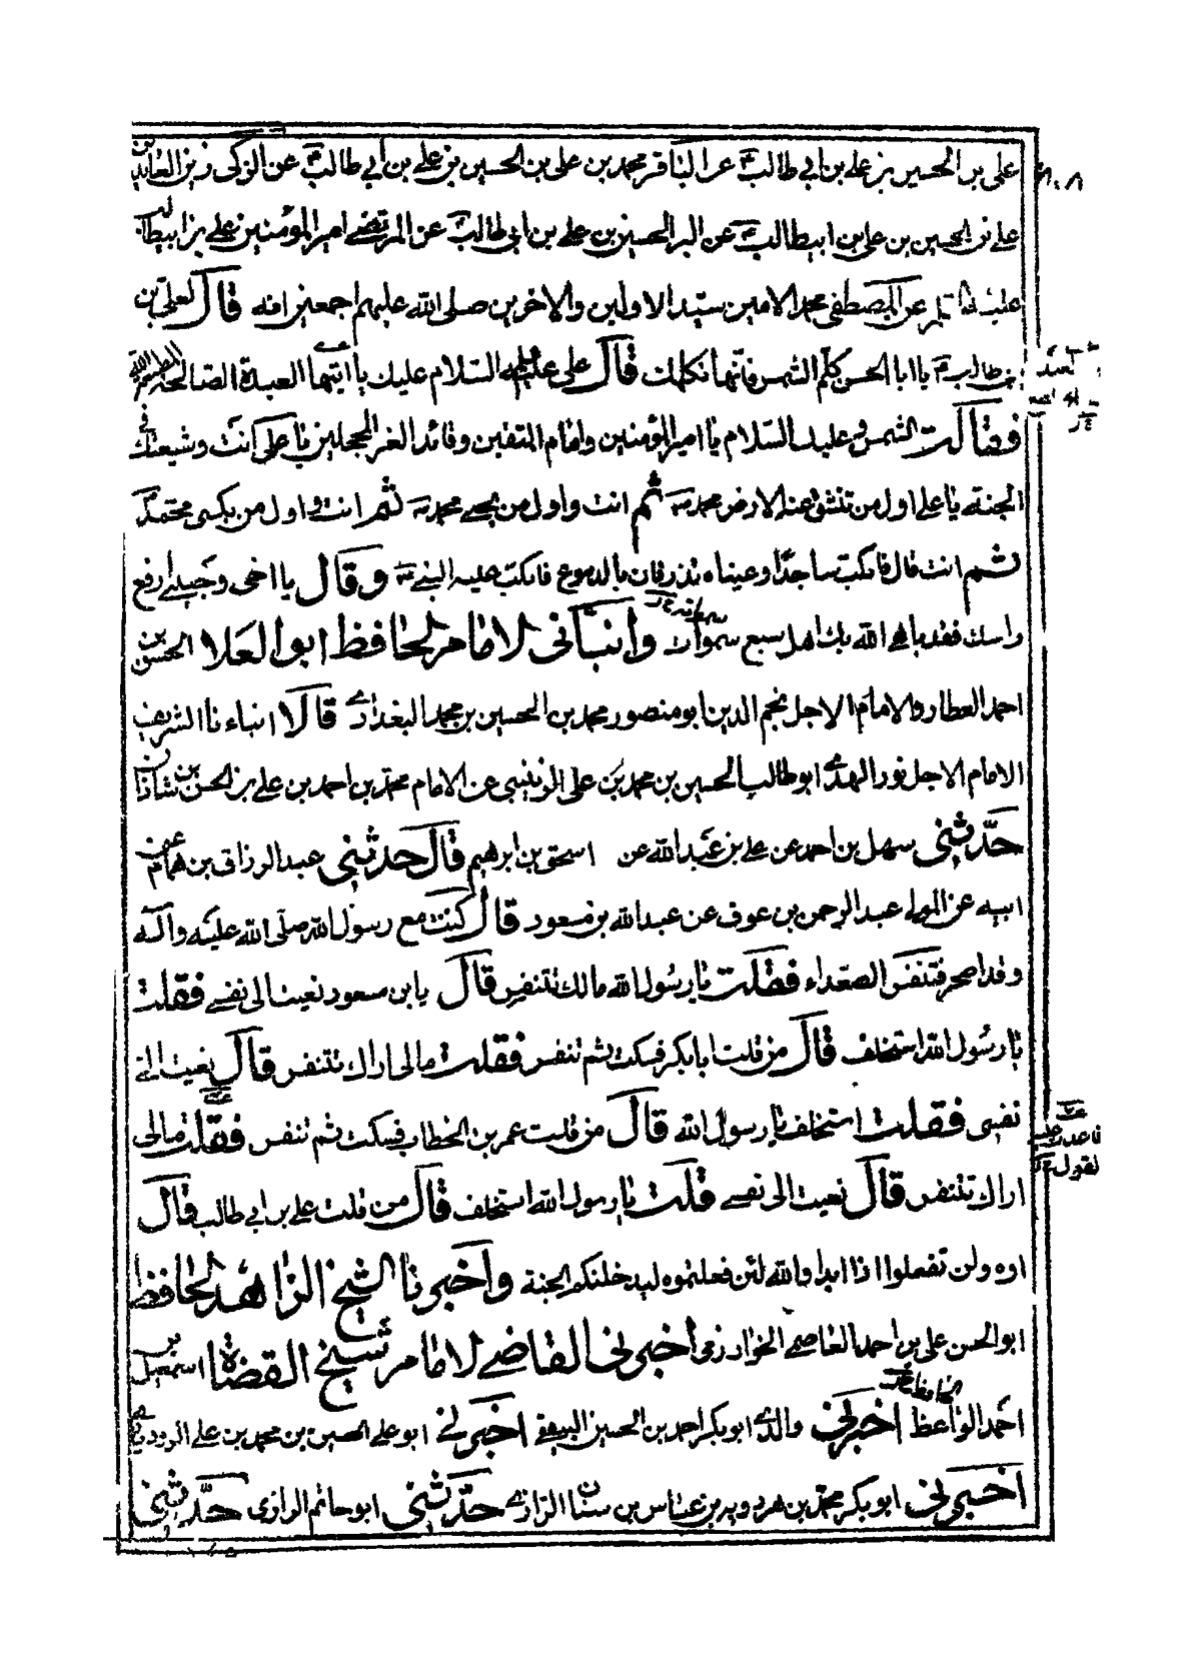 علي بن الحسين بن علي بن ابي طالب عن الباقر محمد بن علي بن الحسين بن علي بن ابي طالب عن الزكي زين العابدين
علي بن الحسين بن علي بن ابيطالب عن البر الحسين بن علي بن ابي طالب عن المرتضى امير المؤمنين علي بن ابيطالب
عن المصطفى محمد الامين سيد الاولين والاخرين صلى الله عليهم اجمعين انه قال لعلي بن
ابي طالب يا ابا الحسن كلم الشمس فانها تكلمك قال علي عليه السلام السلام عليك يا ايتها العبدة الصالحة المطيعة لله
فقالت الشمس وعليك السلام يا امير المؤمنين وامام المتقين وقائد الغر المحجلين يا علي انت وشيعتك في
الجنة يا علي اول من تنشق عنه الارض محمد ثم انت واول من يحيى محمد ثم انت واول من يكسى محمد
ثم انت قال فانكب ساجدا وعيناه تذرفان بالدموع فانكب عليه النبي وقال يا اخي وحبيبي ارفع
راسك فقد باهى الله بك اهل سبع سموات وانبأني الامام الحافظ ابو العلا الحسن بن
احمد العطار والامام الاجل نجم الدين ابو منصور محمد بن الحسين بن محمد البغدادي قالا انباءنا الشريف
الامام الاجل نور الهدى ابو طالب الحسين بن محمد بن علي الزينبي عن الامام محمد بن احمد بن علي بن الحسن بن شاذان
حدثني سهل بن احمد عن علي بن عبد الله عن اسحق بن ابرهيم قال حدثني عبد الرزاق بن همام عن
ابيه عن المولى عبد الرحمن بن عوف عن عبد الله بن مسعود قال كنت مع رسول الله صلى الله عليه وآله
وقد اصحر فتنفس الصعداء فقلت يا رسول الله مالك تتنفس قال يا بن مسعود نعيت الى نفسي فقلت
يا رسول الله استخلف قال من قلت ابا بكر فسكت ثم تنفس فقلت مالى اراك تتنفس قال نعيت الى
نفسي فقلت استخلف يا رسول الله قال من قلت عمر بن الخطاب فسكت ثم تنفس فقلت مالى
اراك تتنفس قال نعيت الى نفسي قلت يا رسول الله استخلف قال من قلت علي بن ابي طالب قال
اوه ولن تفعلوا اذا ابدا والله لئن فعلتموه ليدخلنكم الجنة واخبرنا الشيخ الزاهد الحافظ
ابو الحسن علي بن احمد العاصمي الخوارزمي اخبرني القاضي الامام شيخ القضاة اسمعيل بن
احمد الواعظ اخبرني والدي ابو بكر احمد بن الحسين البيهقي اخبرني ابو علي الحسين بن محمد بن علي الرودباري
اخبرني ابو بكر محمد بن مهرويه بن عباس بن سنان الرازي حدثني ابو حاتم الرازي حدثني